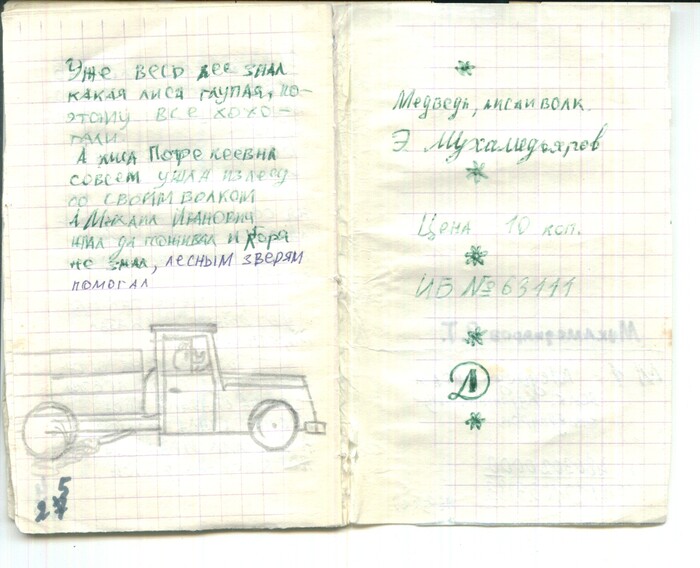 Уже весь лес знал
какая лиса глупая, по-
этому все хохо-
тали.
А лиса
совсем ушла из лесу
со своим волком
А Михаил Иванович
жил да поживал и горя
не знал, лесным зверям
помогал
5
27
Медведь, лиса и волк.
Э. Мухамедьяров
Цена 10 коп.
ИБ № 63111
Д